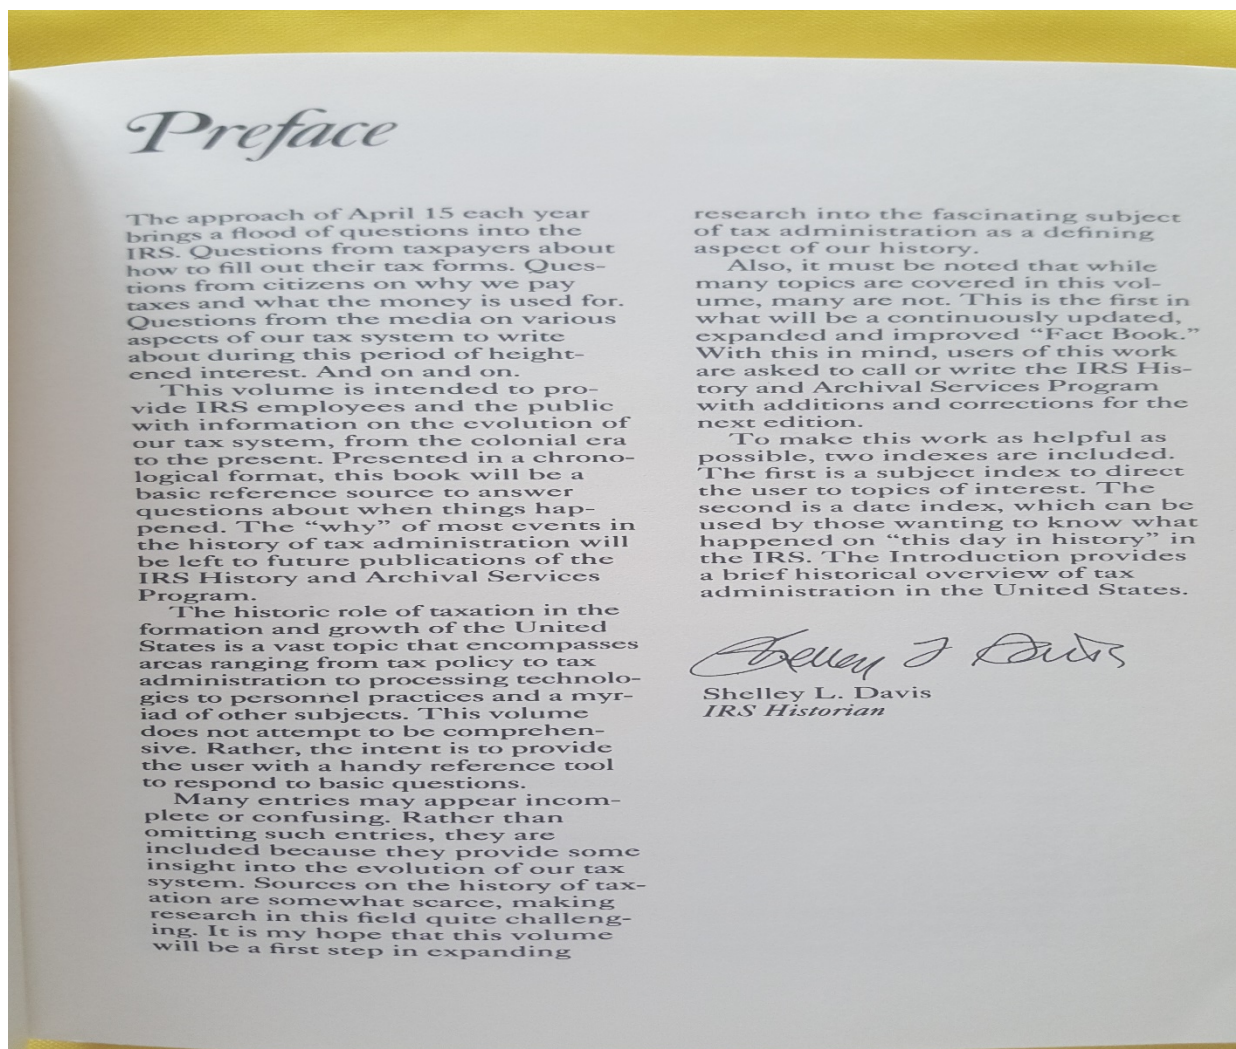 Preface
The approach of April 15 each year
brings a flood of questions into the
IRS. Questions from taxpayers about
how to fill out their tax forms. Ques-
tions from citizens on why we pay
taxes and what the money is used for.
Questions from the media on various
aspects of our tax system to write
about during this period of height-
ened interest. And on and on.
This volume is intended to pro-
vide IRS employees and the public
with information on the evolution of
our tax system, from the colonial era
to the present. Presented in a chrono-
logical format, this book will be a
basic reference source to answer
questions about when things hap-
pened. The “why” of most events in
the history of tax administration will
be left to future publications of the
IRS History and Archival Services
Program.
The historic role of taxation in the
formation and growth of the United
States is a vast topic that encompasses
areas ranging from tax policy to tax
administration to processing technolo-
gies to personnel practices and a myr-
iad of other subjects. This volume
does not attempt to be comprehen-
sive. Rather, the intent is to provide
the user with a handy reference tool
to respond to basic questions.
Many entries may appear incom-
plete or confusing. Rather than
omitting such entries, they are
included because they provide some
insight into the evolution of our tax
system. Sources on the history of tax-
ation are somewhat scarce, making
research in this field quite challeng-
ing. It is my hope that this volume
will be a first step in expanding
research into the fascinating subject
of tax administration as a defining
aspect of our history.
Also, it must be noted that while
many topics are covered in this vol-
ume, many are not. This is the first in
what will be a continuously updated,
expanded and improved “Fact Book.”
With this in mind, users of this work
are asked to call or write the IRS His-
tory and Archival Services Program
with additions and corrections for the
next edition.
To make this work as helpful as
possible, two indexes are included.
The first is a subject index to direct
the user to topics of interest. The
second is a date index, which can be
used by those wanting to know what
happened on “this day in history” in
the IRS. The Introduction provides
a brief historical overview of tax
administration in the United States.
Shelley L Davis
Shelley L. Davis
IRS Historian